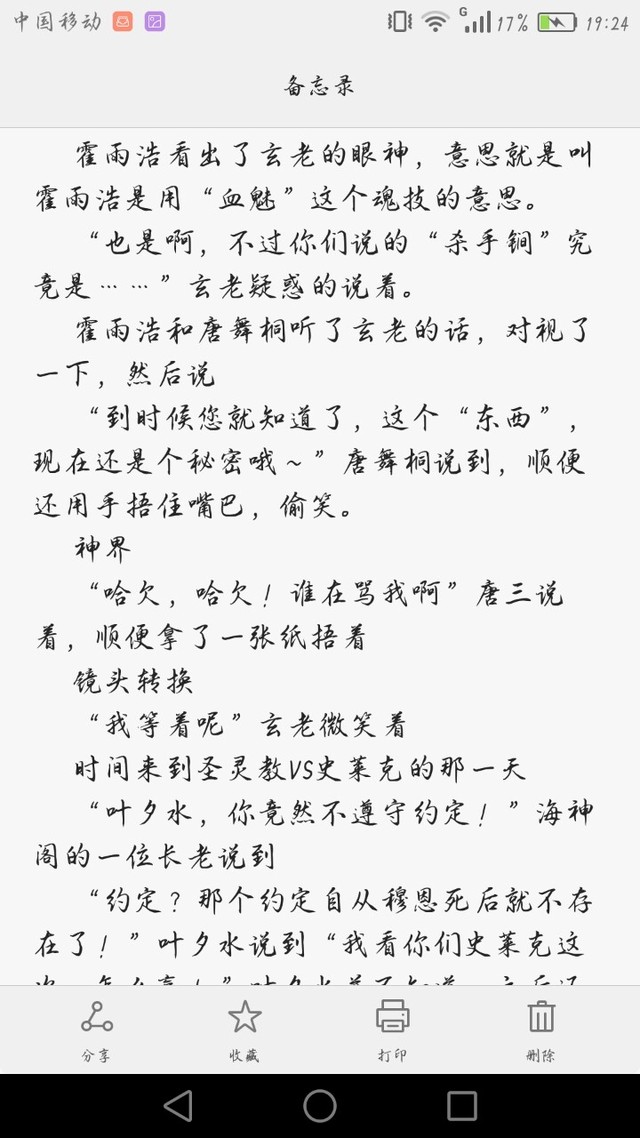 中国移动
G
17%
19:24
备忘录
霍雨浩看出了玄老的眼神，意思就是叫
霍雨浩是用“血魅”这个魂技的意思。
“也是啊，不过你们说的“杀手锏”究
竟是……”玄老疑惑的说着。
霍雨浩和唐舞桐听了玄老的话，对视了
一下，然后说
“到时候您就知道了，这个“东西”，
现在还是个秘密哦～”唐舞桐说到，顺便
还用手捂住嘴巴，偷笑。
神界
“哈欠，哈欠！谁在骂我啊”唐三说
着，顺便拿了一张纸捂着
镜头转换
“我等着呢”玄老微笑着
时间来到圣灵教VS史莱克的那一天
“叶夕水，你竟然不遵守约定！”海神
阁的一位长老说到
“约定？那个约定自从穆恩死后就不存
在了！”叶夕水说到“我看你们史莱克这
分享
收藏
打印
删除